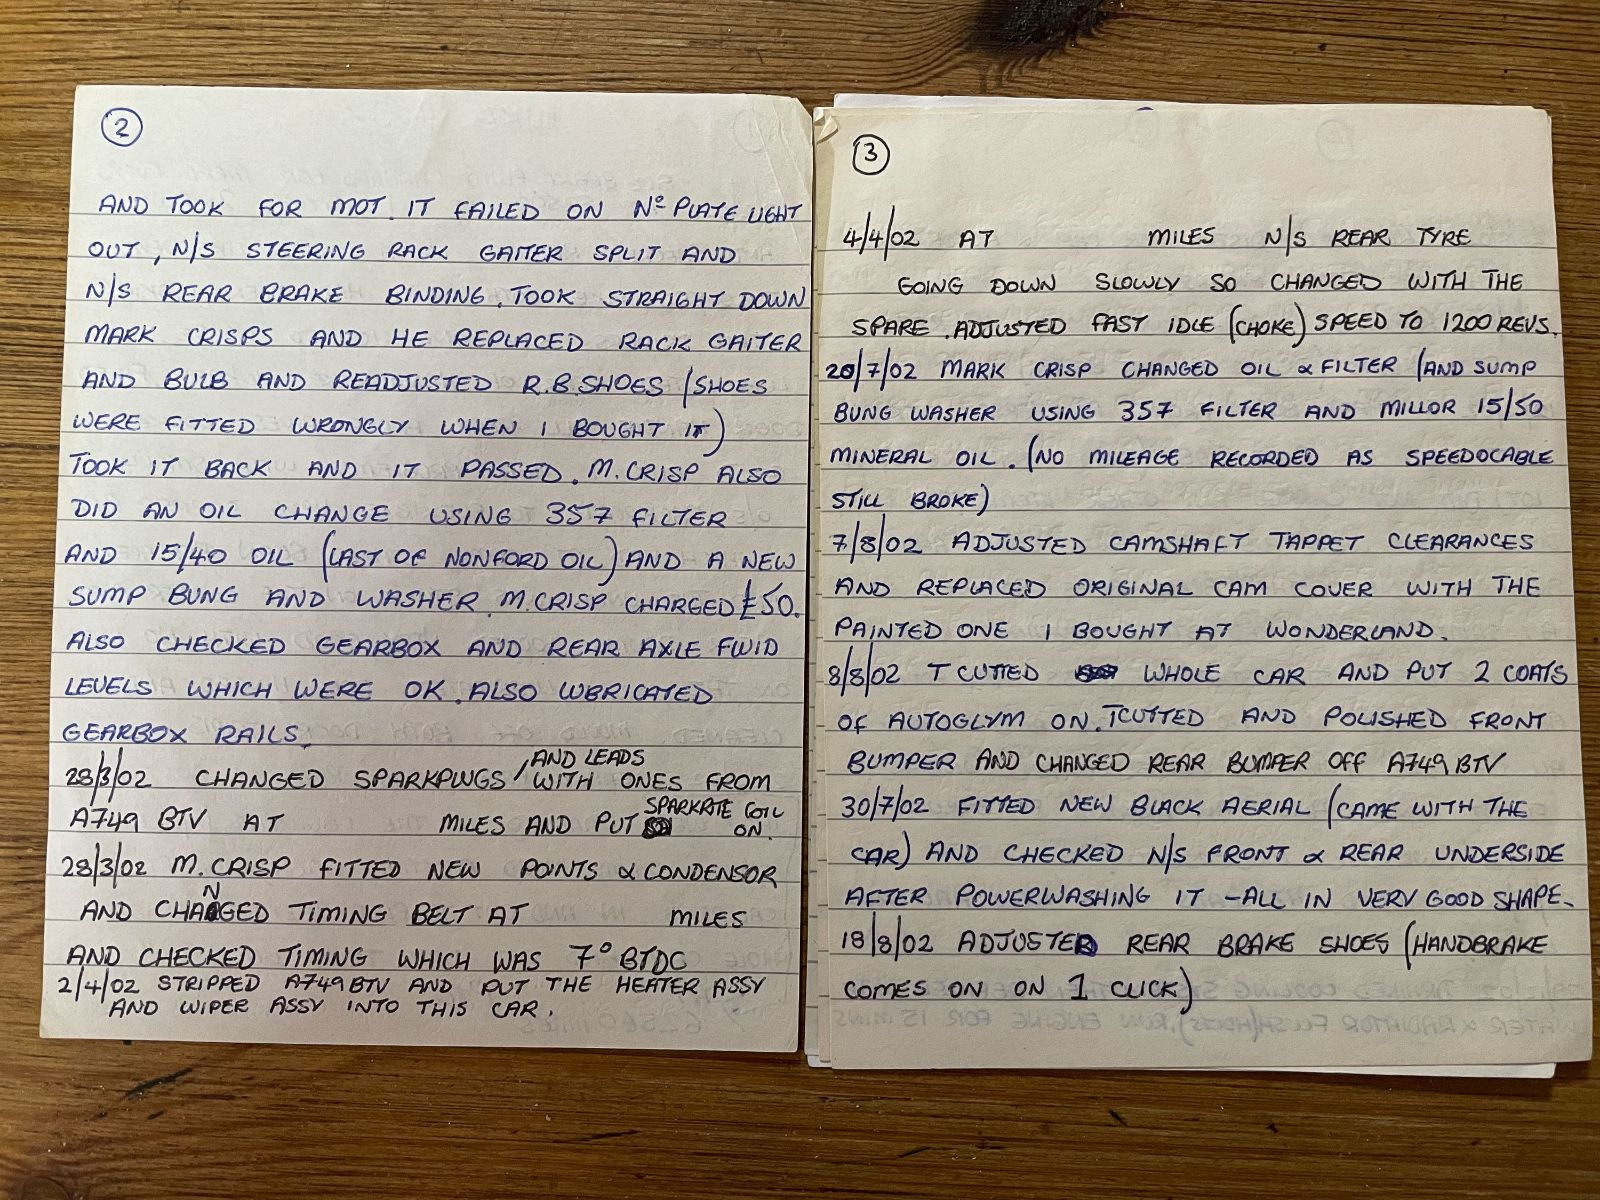 2
AND TOOK FOR MOT. IT FAILED ON Nº PLATE LIGHT
OUT, N/S STEERING RACK GAITER SPLIT AND
N/S REAR BRAKE BINDING. TOOK STRAIGHT DOWN
MARK CRISPS AND HE REPLACED RACK GAITER
AND BULB AND READJUSTED R.B.SHOES (SHOES
WERE FITTED WRONGLY WHEN I BOUGHT IT)
TOOK IT BACK AND IT PASSED. M.CRISP ALSO
DID AN OIL CHANGE USING 357 FILTER
AND 15/40 OIL (LAST OF NONFORD OIL) AND A NEW
SUMP BUNG AND WASHER. M.CRISP CHARGED £50.
ALSO CHECKED GEARBOX AND REAR AXLE FLUID
LEVELS WHICH WERE OK. ALSO LUBRICATED
GEARBOX RAILS.
28/3/02 CHANGED SPARKPLUGS, AND LEADS WITH ONES FROM
A749 BTV AT MILES AND PUT SPARKRITE COIL ON.
28/3/02 M.CRISP FITTED NEW POINTS & CONDENSOR
AND CHANGED TIMING BELT AT MILES
AND CHECKED TIMING WHICH WAS 7° BTDC
2/4/02 STRIPPED A749 BTV AND PUT THE HEATER ASSY
AND WIPER ASSY INTO THIS CAR.
3
4/4/02 AT MILES N/S REAR TYRE
GOING DOWN SLOWLY SO CHANGED WITH THE
SPARE. ADJUSTED FAST IDLE (CHOKE) SPEED TO 1200 REVS.
20/7/02 MARK CRISP CHANGED OIL & FILTER (AND SUMP
BUNG WASHER USING 357 FILTER AND MILLOR 15/50
MINERAL OIL. (NO MILEAGE RECORDED AS SPEEDOCABLE
STILL BROKE)
7/8/02 ADJUSTED CAMSHAFT TAPPET CLEARANCES
AND REPLACED ORIGINAL CAM COVER WITH THE
PAINTED ONE I BOUGHT AT WONDERLAND.
8/8/02 T CUTTED WHOLE CAR AND PUT 2 COATS
OF AUTOGLYM ON. TCUTTED AND POLISHED FRONT
BUMPER AND CHANGED REAR BUMPER OFF A749 BTV
30/7/02 FITTED NEW BLACK AERIAL (CAME WITH THE
CAR) AND CHECKED N/S FRONT & REAR UNDERSIDE
AFTER POWERWASHING IT - ALL IN VERY GOOD SHAPE.
18/8/02 ADJUSTED REAR BRAKE SHOES (HANDBRAKE
COMES ON ON 1 CLICK)